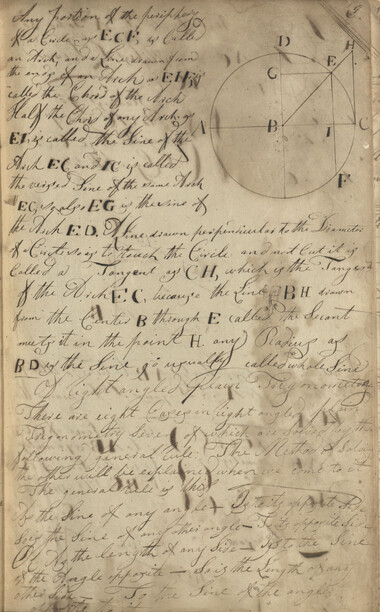 8.
Any portion of the periphery
of a Circle as ECF, is Called
an Arch, and a Line drawn from
the ends of an Arch as EF, is
called the Chord of the Arch
Half the Chord of any Arch, as
EI, is called, the Sine of the
Arch EC and IC is called
the versed Sine of the same Arch
EC, so also EG is the sine of
the Arch ED. A line drawn perpendicular to the Diameter
of a Circle so as to touch the Circle and not Cut it is
Called a Tangent as CH, which is the Tangent
of the Arch EC, because the Line BH drawn
from the Center B through E called the Secant
meets it in the point H. any Radius as
BD is the Sine, usually called whole Sine
Of Right angled Plain Trigonometry
There are eight Cases in right angled Plain
Trigonometry Seven of which are solved by the
following general rule. The Method of
the other will be explained when we come to it.
The general rule is this
As the Sine of any angle — Is to its opposite Side
So is the Sine of any other angle — To its opposite Side
Or As the length of any Side — Is to the Sine
of the Angle opposite — So is the Length of any
other Side — To the Sine of the angle
opposite to it
D
H
G
E
A
B
I
C
F